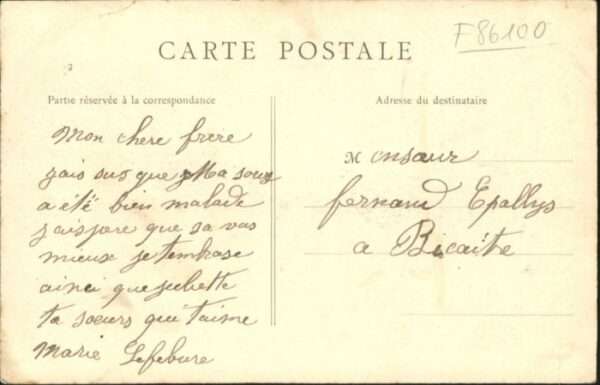 F86100
CARTE POSTALE
Partie réservée à la correspondance
Adresse du destinataire
Mon chere frere
jais sus que Ma sous
a été bien malade
jaispare que sa vas
mieux je tembrase
ainci que juliette
ta soeurs qui t'aime
Marie Lefebure
Monsieur
fernand Epallys
a